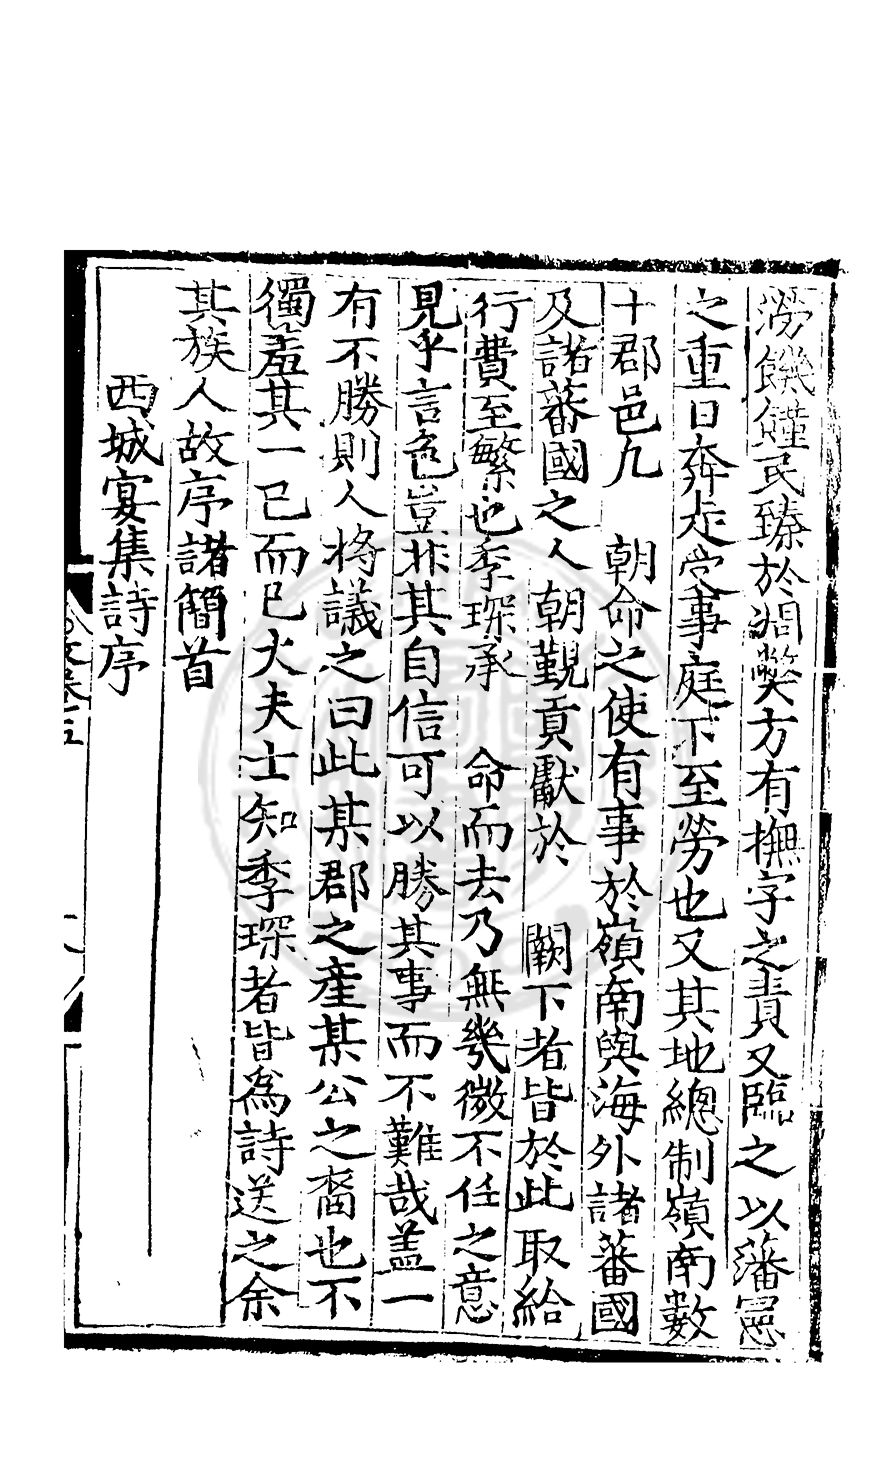 澇饑饉民臻於凋弊方有撫字之責又臨之以藩憲
之重日奔走受事庭下至勞也又其地總制嶺南數
十郡邑凡　朝命之使有事於嶺南與海外諸蕃國
及諸蕃國之人朝覲貢獻於　闕下者皆於此取給
行費至繁也季琛承　命而去乃無幾微不任之意
見乎言色豈非其自信可以勝其事而不難哉盖一
有不勝則人將議之曰此某郡之產某公之裔也不
獨羞其一己而已大夫士知季琛者皆為詩送之余
其族人故序諸簡首
西城宴集詩序